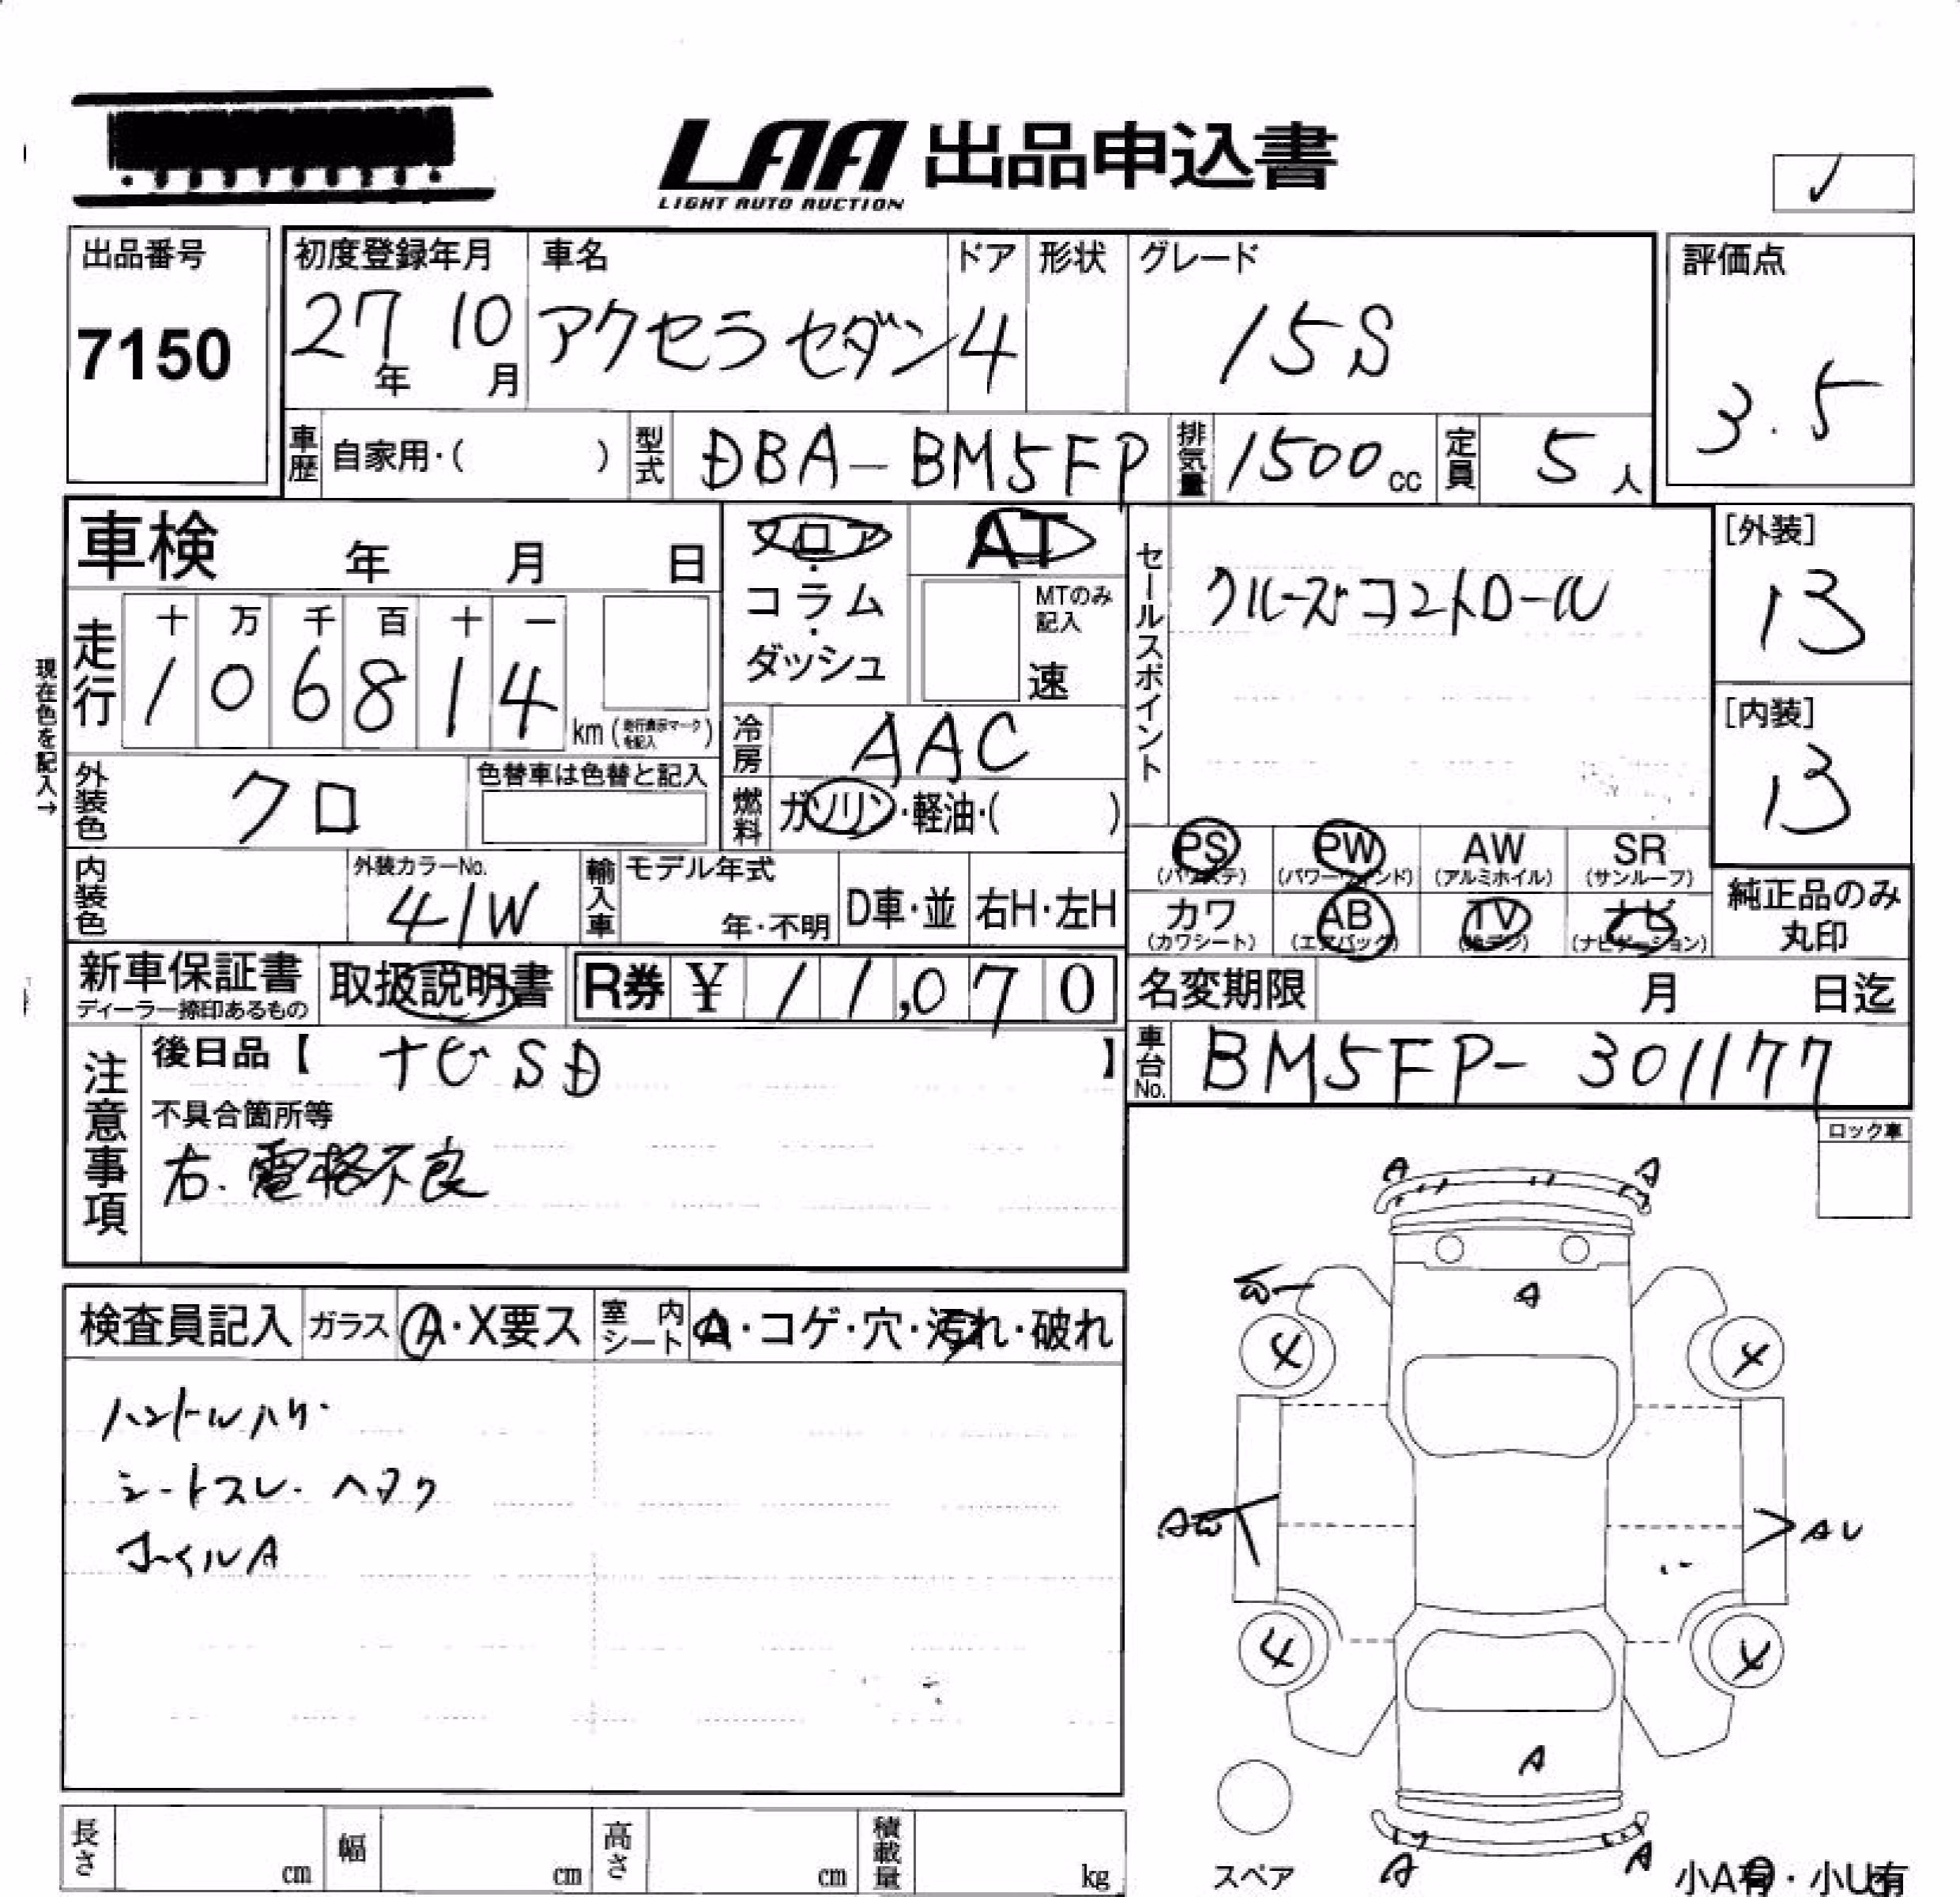 LAA 出品申込書
LIGHT AUTO AUCTION
出品番号
7150
初度登録年月
27年 10月
車名
アクセラ セダン
ドア
4
形状
グレード
15S
評価点
3.5
車歴 自家用・( )
型式 DBA-BM5FP
排気量 1500cc
定員 5人
車検 年 月 日
フロア・コラム・ダッシュ
AT
MTのみ記入
速
セールスポイント
クルーズコントロール
[外装]
13
[内装]
13
現在色を記入→
走行
十 万 千 百 十 一
1 0 6 8 1 4
km (走行表示マークを記入)
冷房 AAC
外装色 クロ
色替車は色替と記入
燃料 ガソリン・軽油・( )
内装色
外装カラーNo.
41W
輸入車
モデル年式
年・不明
D車・並
右H・左H
PS (パワステ)
PW (パワーウインド)
AW (アルミホイル)
SR (サンルーフ)
カワ (カワシート)
AB (エアバッグ)
TV (地デジ)
ナビ (ナビゲーション)
純正品のみ丸印
新車保証書
ディーラー捺印あるもの
取扱説明書
R券 ¥ 11,070
名変期限 月 日迄
注意事項
後日品【 ナビSD 】
車台No. BM5FP-301177
不具合箇所等
右.電格不良
ロック車
検査員記入
ガラス A・X要ス
室内シート A・コゲ・穴・汚れ・破れ
ハンドルハゲ・
シートスレ・ヘタク
ホイルA
A A
A
4 4
AW
AU
4 4
A
A A
スペア
小A有・小U有
長さ cm
幅 cm
高さ cm
積載量 kg